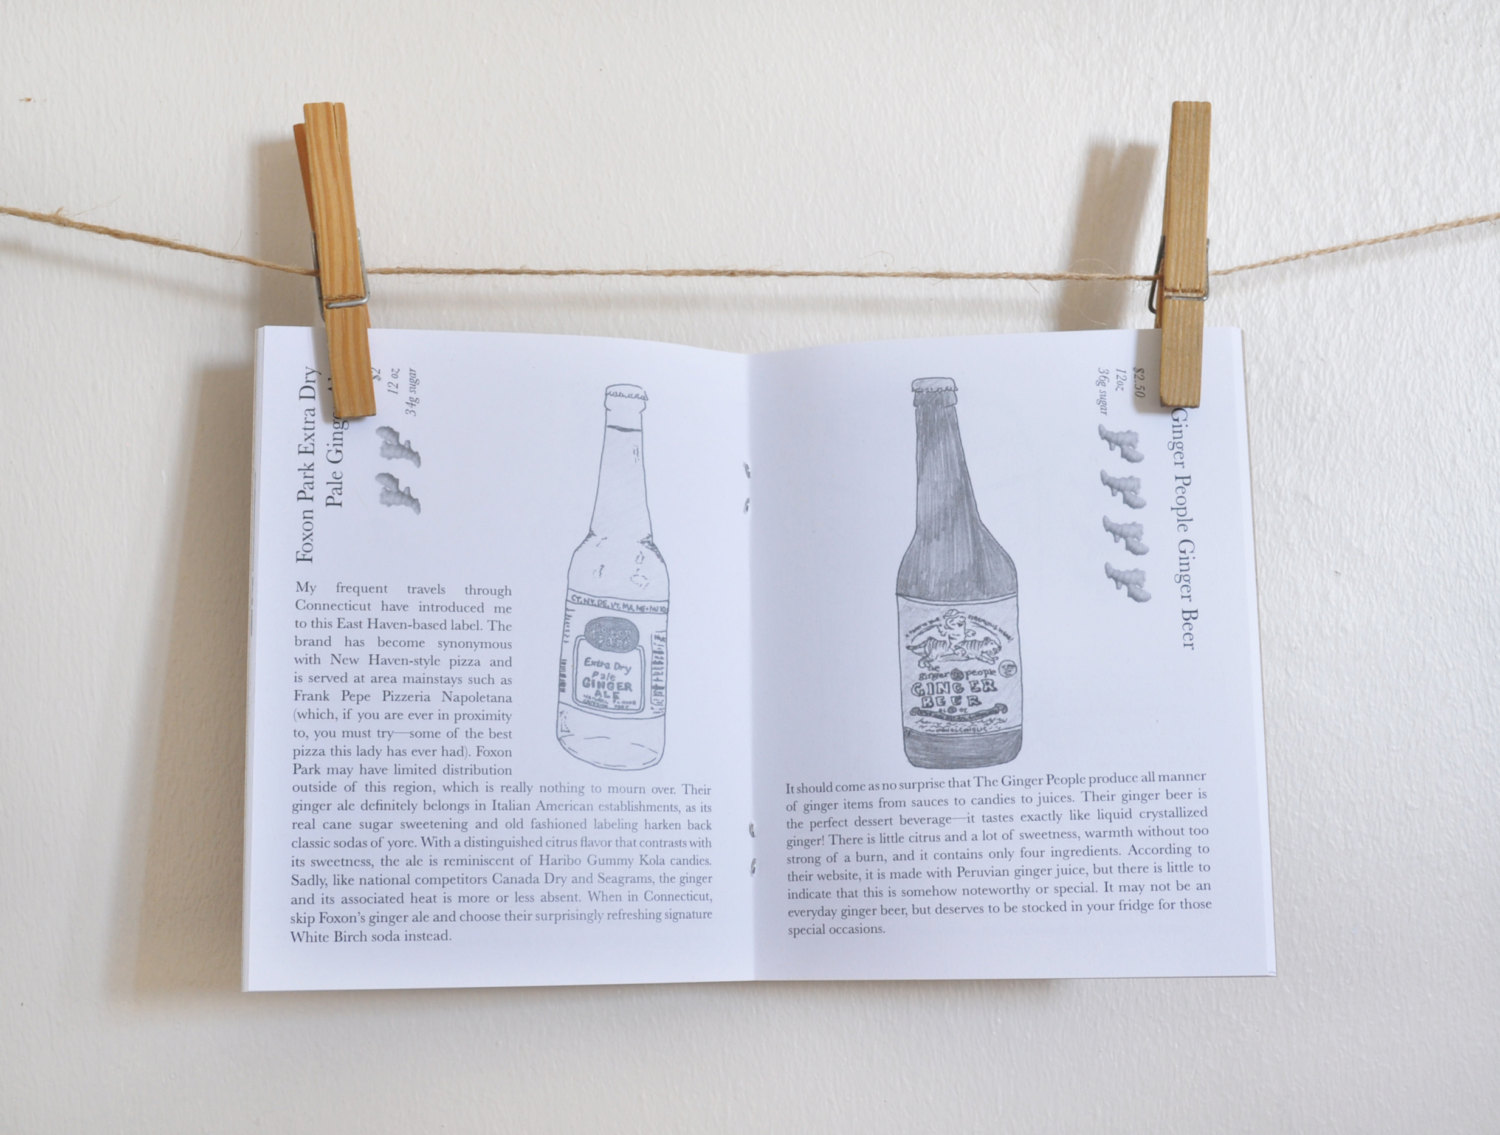 Foxon Park Extra Dry
Pale Ginger
$2
12 oz
34g sugar
My frequent travels through
Connecticut have introduced me
to this East Haven-based label. The
brand has become synonymous
with New Haven-style pizza and
is served at area mainstays such as
Frank Pepe Pizzeria Napoletana
(which, if you are ever in proximity
to, you must try—some of the best
pizza this lady has ever had). Foxon
Park may have limited distribution
outside of this region, which is really nothing to mourn over. Their
ginger ale definitely belongs in Italian American establishments, as its
real cane sugar sweetening and old fashioned labeling harken back
classic sodas of yore. With a distinguished citrus flavor that contrasts with
its sweetness, the ale is reminiscent of Haribo Gummy Kola candies.
Sadly, like national competitors Canada Dry and Seagrams, the ginger
and its associated heat is more or less absent. When in Connecticut,
skip Foxon's ginger ale and choose their surprisingly refreshing signature
White Birch soda instead.
Extra Dry
Pale
GINGER
ALE
$2.50
12oz
36g sugar
Ginger People Ginger Beer
the
ginger people
GINGER
BEER
It should come as no surprise that The Ginger People produce all manner
of ginger items from sauces to candies to juices. Their ginger beer is
the perfect dessert beverage—it tastes exactly like liquid crystallized
ginger! There is little citrus and a lot of sweetness, warmth without too
strong of a burn, and it contains only four ingredients. According to
their website, it is made with Peruvian ginger juice, but there is little to
indicate that this is somehow noteworthy or special. It may not be an
everyday ginger beer, but deserves to be stocked in your fridge for those
special occasions.